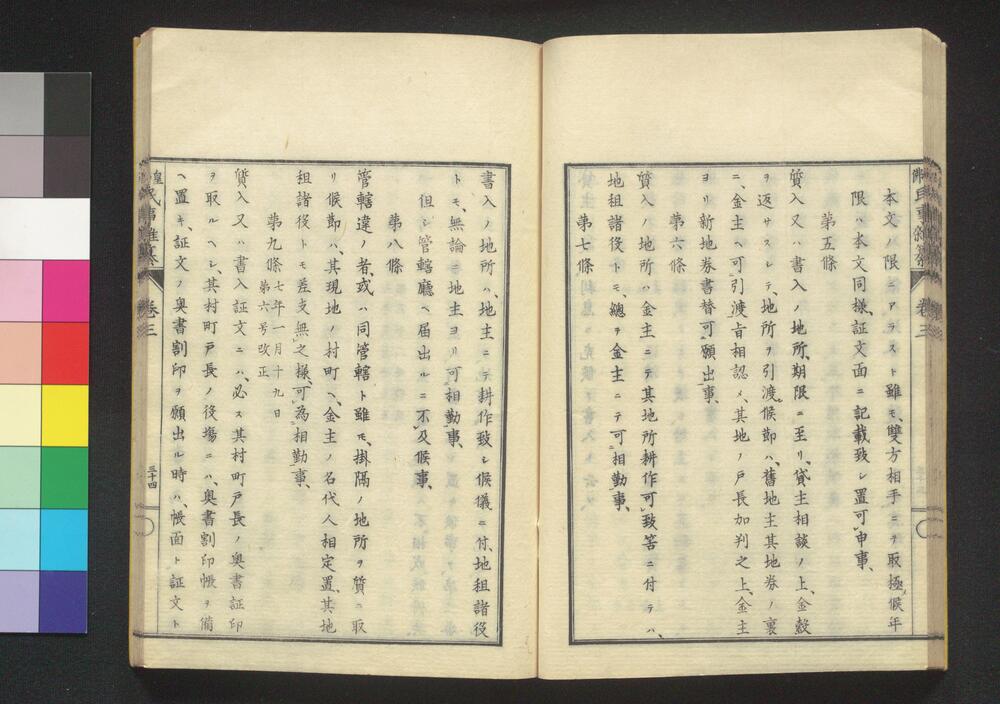 本文ノ限ニアラスト雖モ、雙方相手ニヲ取極候年
限ハ本文同樣、証文面ニ記載致シ置可申事、
第五條
質入又ハ書入ノ地所、期限ニ至リ、貸主相談ノ上、金穀
ヲ返サスシテ、地所ヲ引渡候節ハ、舊地主其地券ノ裏
ニ、金主ヘ可引渡旨相認メ、其地ノ戸長加判之上、金主
ヨリ新地券書替可願出事、
第六條
質入ノ地所ハ金主ニテ其地所耕作可致筈ニ付テハ、
地租諸役トモ、總テ金主ニテ可相勤事、
第七條
書入ノ地所ハ、地主ニテ耕作致シ候儀ニ付、地租諸役
トモ、無論ニ地主ヨリ可相勤事、
但シ管轄廳ヘ届出ルニ不及候事、
第八條
管轄違ノ者、或ハ同管轄ト雖モ、掛隔ノ地所ヲ質ニ取
リ候節ハ、其現地ノ村町ヘ、金主ノ名代人相定置、其地
租諸役トモ差支無之樣、可為相勤事、
第九條 七年一月十九日
第六号改正
質入又ハ書入証文ニハ、必ス其村町戸長ノ奥書証印
ヲ取ルヘシ、其村町戸長ノ役塲ニハ、奥書割印帳ヲ備
ヘ置キ、証文ノ奥書割印ヲ願出ル時ハ、帳面ト証文ト
卷三
三十四